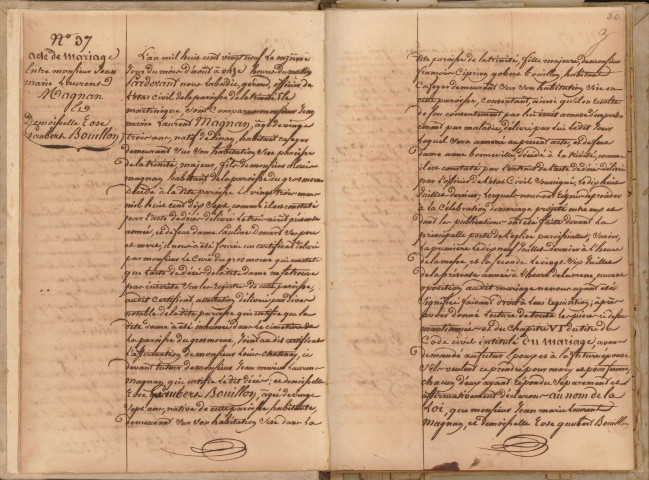 N° 37
acte de mariage
Entre monsieur Jean
marie Laurent
Magnan
Et
Demoiselle Rose
Gaubert Bouillon
L'an mil huit cent vingt neuf Le
Jour du mois d'août à onze heures du matin
Pardevant nous Labadie, gérant officier de
L'état civil de la paroisse de la trinité Ile
martinique sont comparus monsieur Jean
marie Laurent Magnan, agé de vingt
trois ans, natif de habitant cafeyer
demeurant sur son habitation sise paroisse
de la trinité, majeur, fils de monsieur
magnan habitant de la paroisse du gros morne
décédé à la dite paroisse le vingt trois mars
mil huit cent dix sept comme il est constaté
par l'acte de décès délivré
année, et de feue dame Pauline Douard ses père
et mère; il nous a été fourni un certificat délivré
par monsieur Le Curé du gros morne qui constate
que l'acte de décès de la dite dame ne se trouve
pas inscrit sur les registres de cette paroisse,
audit certificat, attestation délivrée par divers
notables de la dite paroisse qui certifie que la
dite dame a été inhumée dans le cimetière de
la paroisse du gros morne, Joint au dit certificat
l'affirmation de monsieur Louis ci
devant tuteur de monsieur Jean marie Laurent
magnan, qui certifie Le dit décès; et demoiselle
Rose Gaubert Bouillon, agée de vingt
sept ans, native de cette paroisse habitante,
demeurant sur son habitation sise dans la
50.
9
dite paroisse de la trinité, fille majeure de monsieur
françois Cyprien gobert Bouillon, habitant
Cafeyer demeurant sur son habitation sise en
cette paroisse, consentant, ainsi qu'il en resulte
de son consentement par lui écrit
cent par maladie, délivré par lui Le dit Jour
lequel sera annexé au present acte, et de feue
dame anne Bonneville, décédé à la trinité, comme
il est constaté par l'extrait de l'acte de décès délivré
par l'officier de l'état Civil soussigné, Le dix huit
Juillet dernier, Lesquels nous ont requis de procéder
à la Célébration du mariage projeté entre eux et
dont les publications ont été faites devant la
principale porte de l'église paroissiale, savoir,
la premiere Le dix neuf Juillet dernier à l'heure
de la messe et la seconde Le vingt six Juillet
de la presente année à l'heure de la messe, aucune
opposition audit mariage ne nous ayant été
signifiée faisant droit à leur requisition; après
avoir donné Lecture de toutes les pièces ci dessus
mentionnées et du Chapitre VI du titre du
Code civil intitulé Du Mariage, avons
demandé au futur Epoux et à la future épouse
s'ils veulent se prendre pour mary et pour femme,
chacun d'eux ayant répondu séparement et
affirmativement déclarons au nom de la
Loi, que monsieur Jean marie Laurent
Magnan, et demoiselle Rose gaubert Bouillon